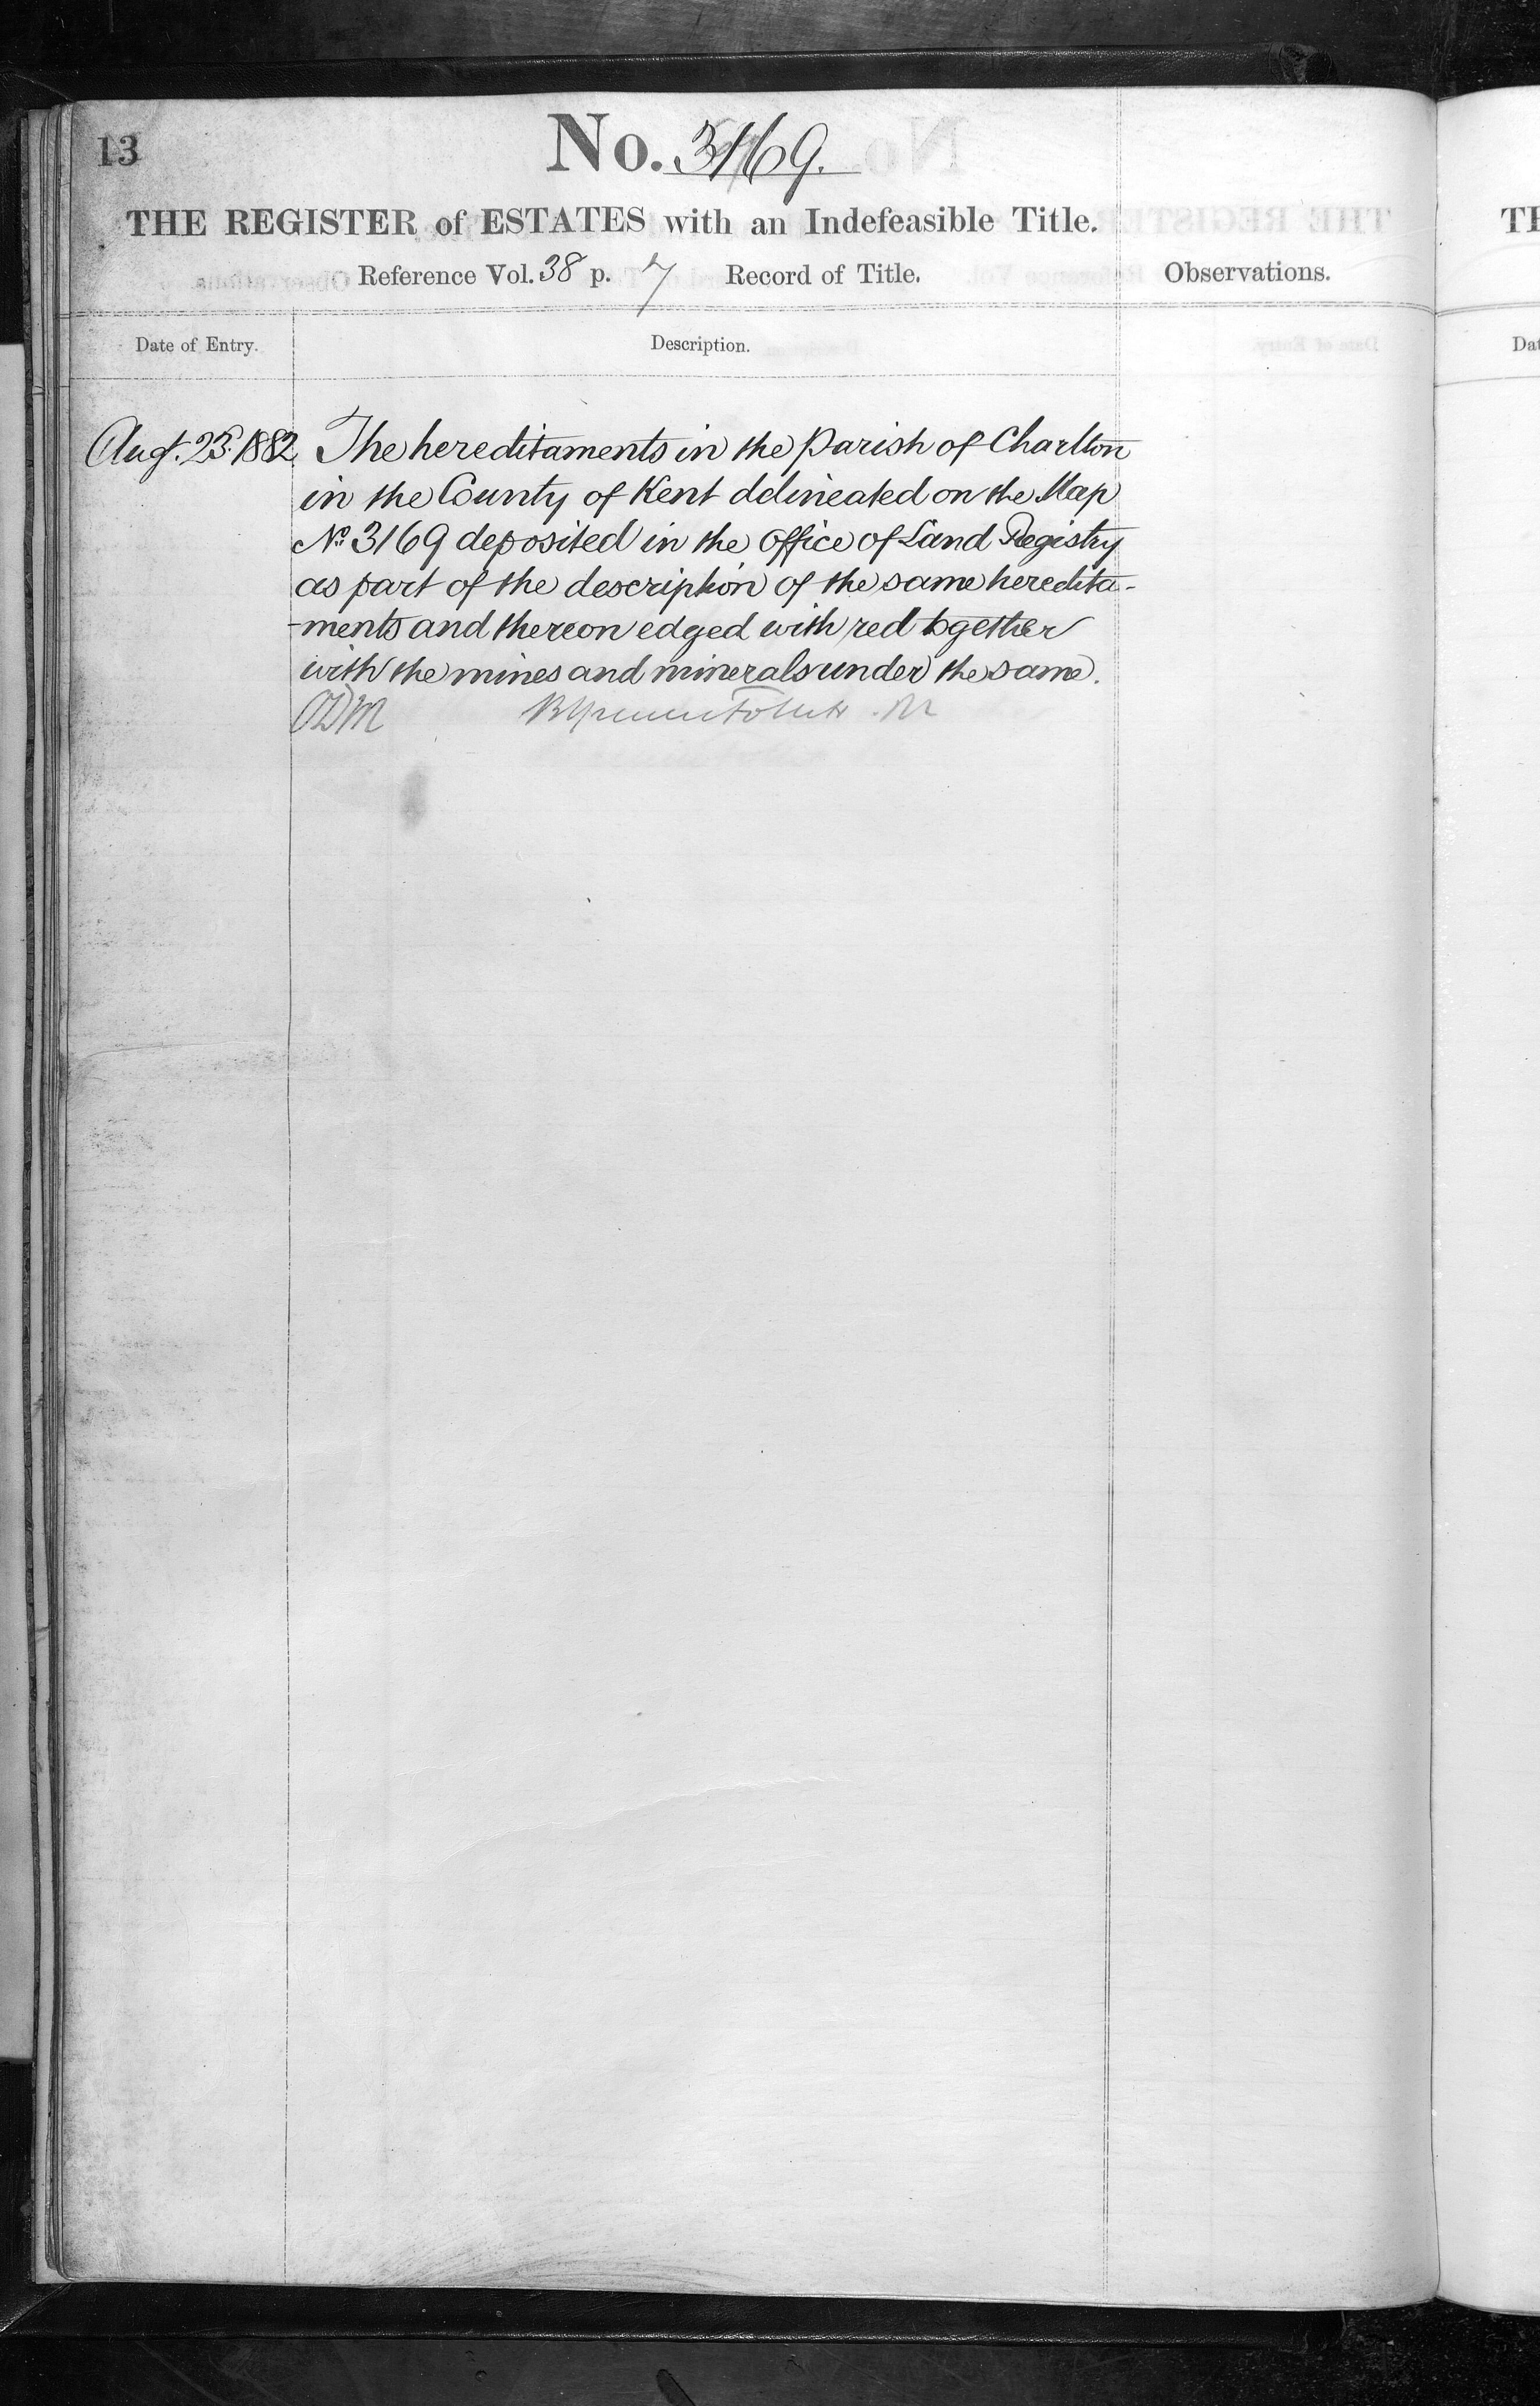 13
No. 3169.
THE REGISTER of ESTATES with an Indefeasible Title.
Reference Vol. 38 p. 7 Record of Title.
Observations.
Date of Entry.
Description.
Augt. 25. 1882
The hereditaments in the Parish of Charlton
in the County of Kent delineated on the Map
No. 3169 deposited in the Office of Land Registry
as part of the description of the same heredita-
-ments and thereon edged with red together
with the mines and minerals under the same.
TH
Dat